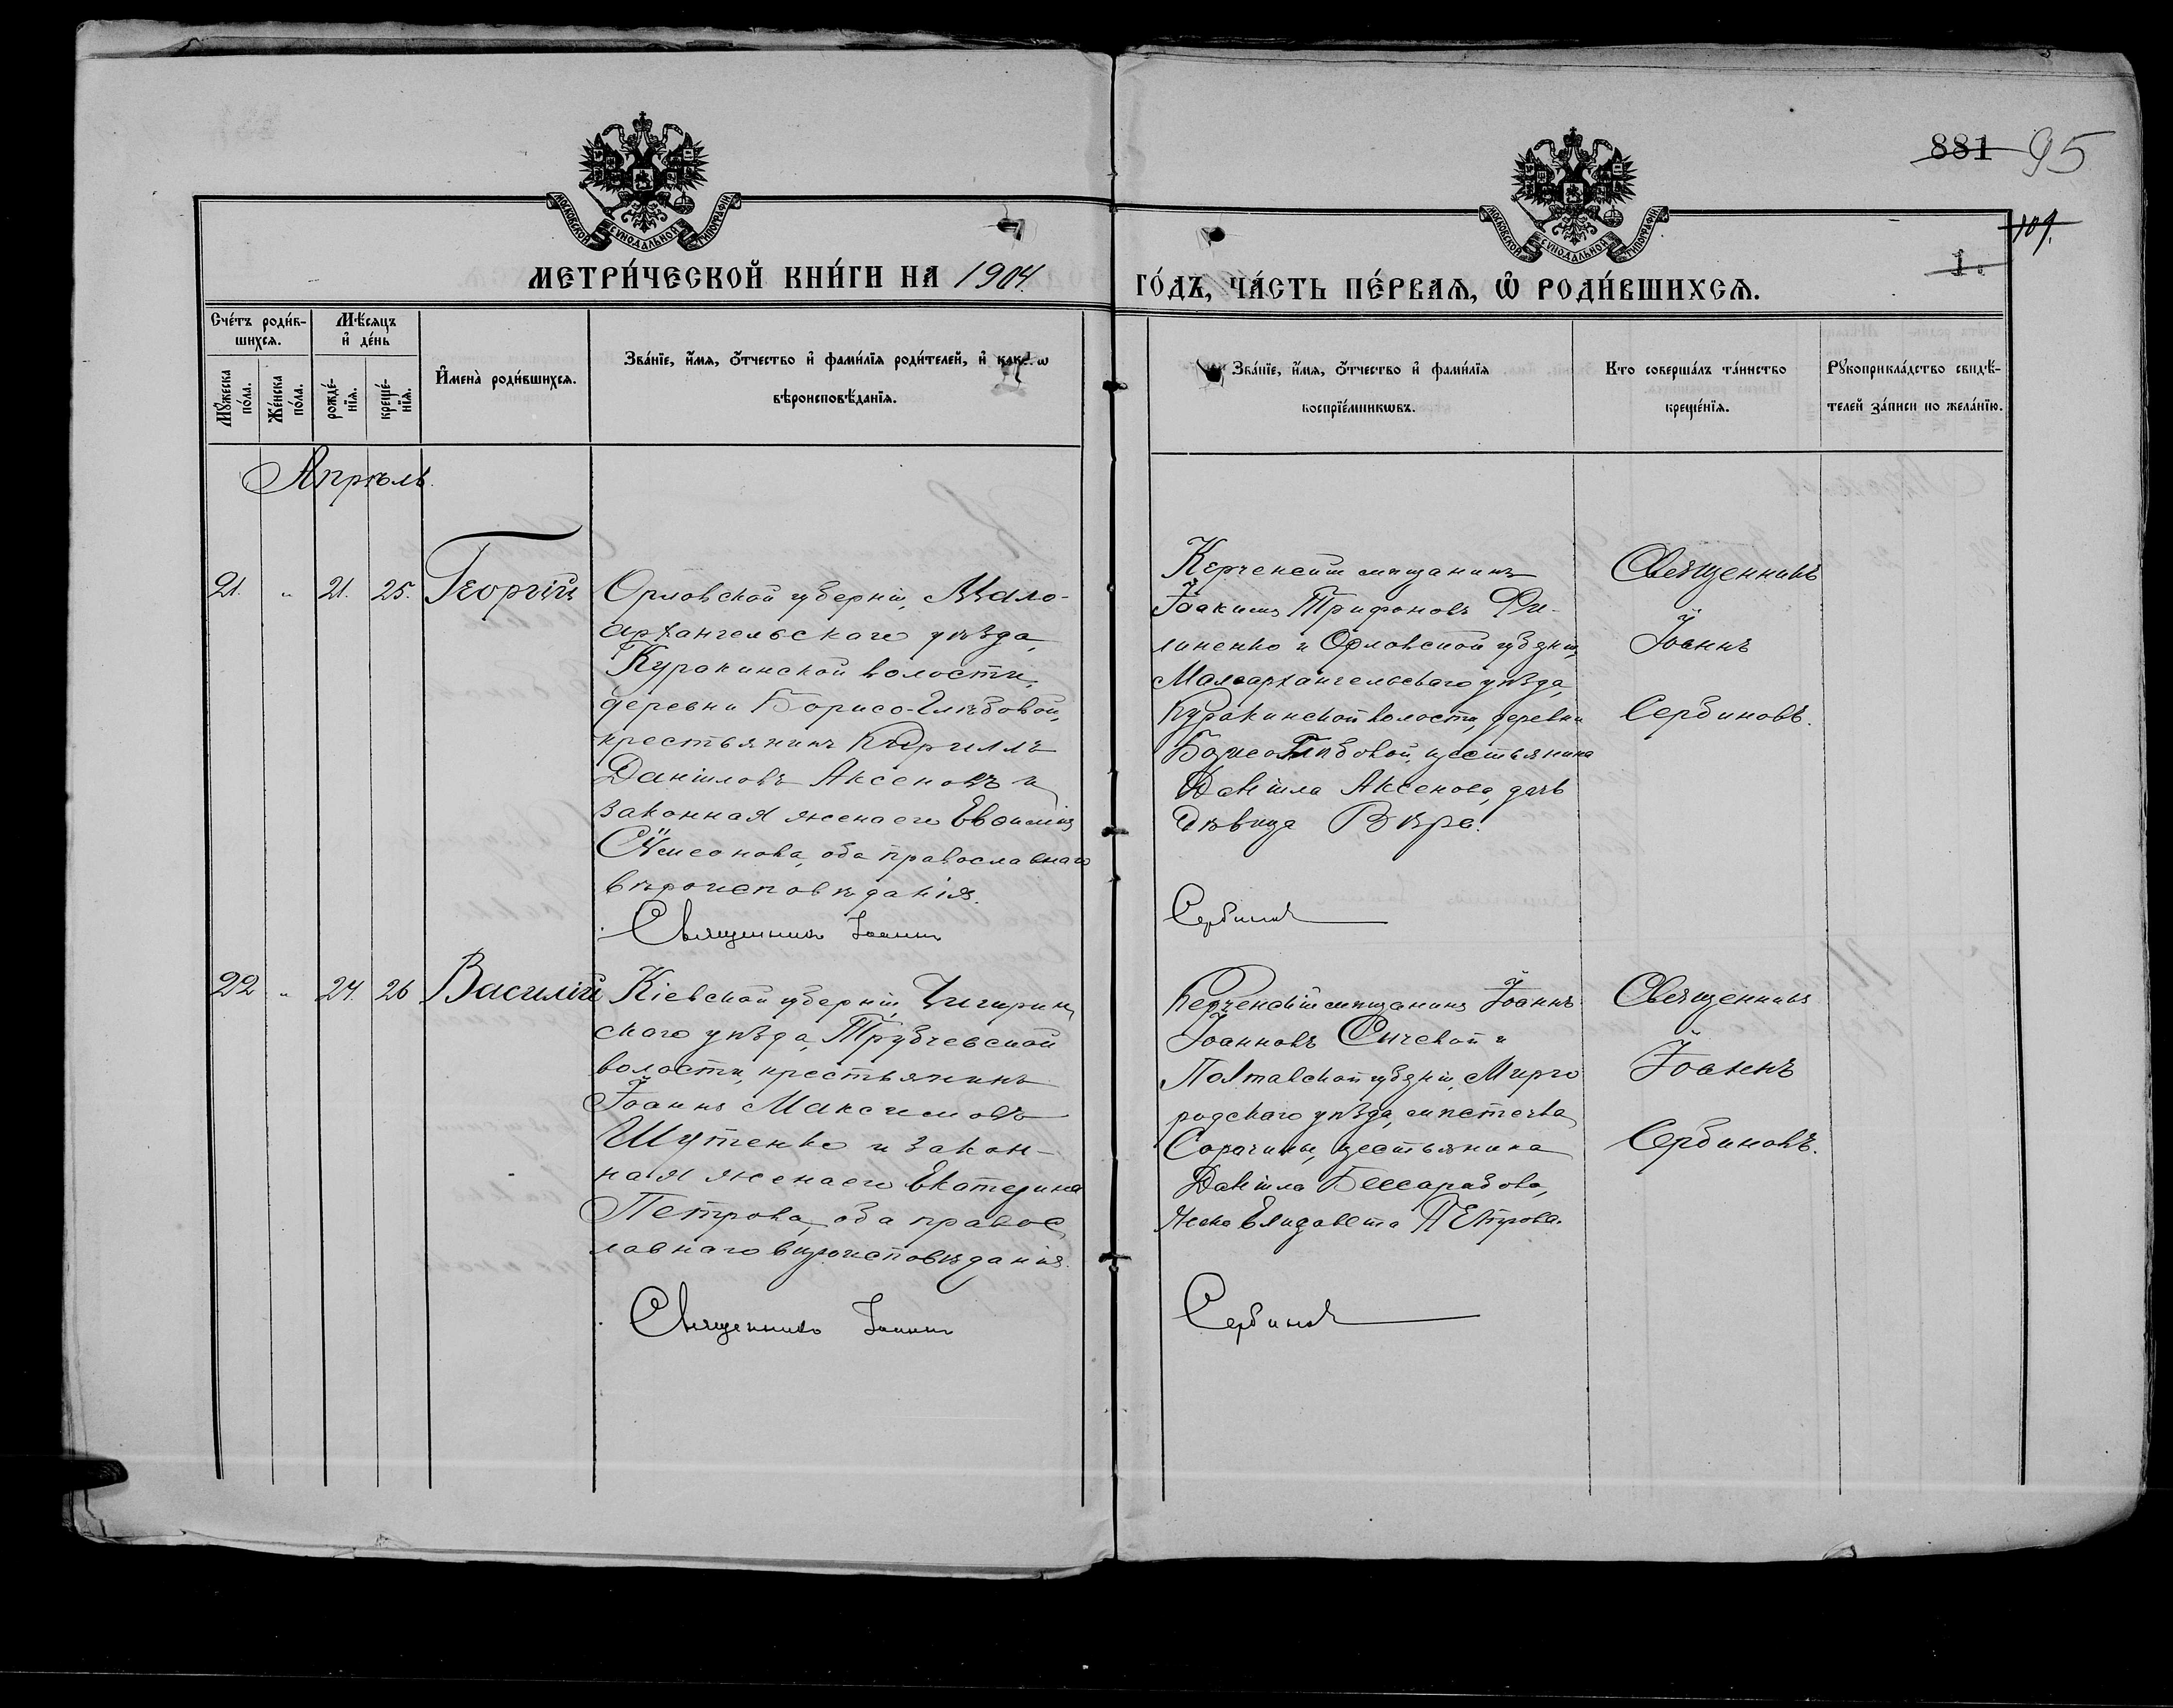 881 95
МОСКОВСКОЙ СѴНОДАЛЬНОЙ ТИПОГРАФІИ
МОСКОВСКОЙ СѴНОДАЛЬНОЙ ТИПОГРАФІИ
109.
1.
МЕТРИ́ЧЕСКОЙ КНИ́ГИ НА 1904.
ГО́ДЪ, ЧА́СТЬ ПЕ́РВАѦ, Ѡ҆ РОДИ́ВШИХСѦ.
Сче́тъ роди́в-
шихсѧ.
Мꙋ́жеска
по́ла.
Же́нска
по́ла.
Мѣ́сѧцъ
и҆ де́нь
рожде́-
нїѧ.
креще́-
нїѧ.
И҆мена̀ роди́вшихсѧ.
Зва́нїе, и҆́мѧ, ѻ҆́тчество и҆ фами́лїѧ роди́телей, и҆ како́гѡ
вѣроисповѣ́данїѧ.
Зва́нїе, и҆́мѧ, ѻ҆́тчество и҆ фами́лїѧ
воспрїе́мникѡвъ.
Кто соверша́лъ та́инство
креще́нїѧ.
Рꙋкоприкла́дство свидѣ́-
телей за́писи по жела́нїю.
Апрѣль.
21. " 21. 25. Георгій
Орловской губерніи, Мало-
архангельскаго уѣзда,
Куракинской волости,
деревни Борисо-Глѣбовой,
крестьянинъ Кѵриллъ
Даніиловъ Аксеновъ и
законная жена его Евѳимія
Сѵмеонова, оба православнаго
вѣроисповѣданія.
Священникъ Іоаннъ
Керченскій мѣщанинъ
Іоакимъ Трифоновъ Фи-
линенко и Орловской губерніи,
Малоархангельскаго уѣзда,
Куракинской волости, деревни
Борисо Глѣбовой, крестьянина
Даніила Аксенова, дочь
дѣвица Вѣра.
Сербиновъ
Священникъ
Іоаннъ
Сербиновъ.
22 " 24. 26 Василій
Кіевской губерніи, Чигирин
скаго уѣзда, Трубчевской
волости, крестьянинъ
Іоаннъ Максимовъ
Шутенко и закон-
ная жена его Екатерина
Петрова, оба правос
лавнаго вѣроисповѣданія.
Священникъ Іоаннъ
Керченскій мѣщанинъ Іоаннъ
Іоанновъ Сичевой и
Полтавской губерніи, Мирго
родскаго уѣзда, мѣстечка
Сорочины, крестьянина
Даніила Бессарабова,
жена Елизавета Петрова.
Сербиновъ
Священникъ
Іоаннъ
Сербиновъ.